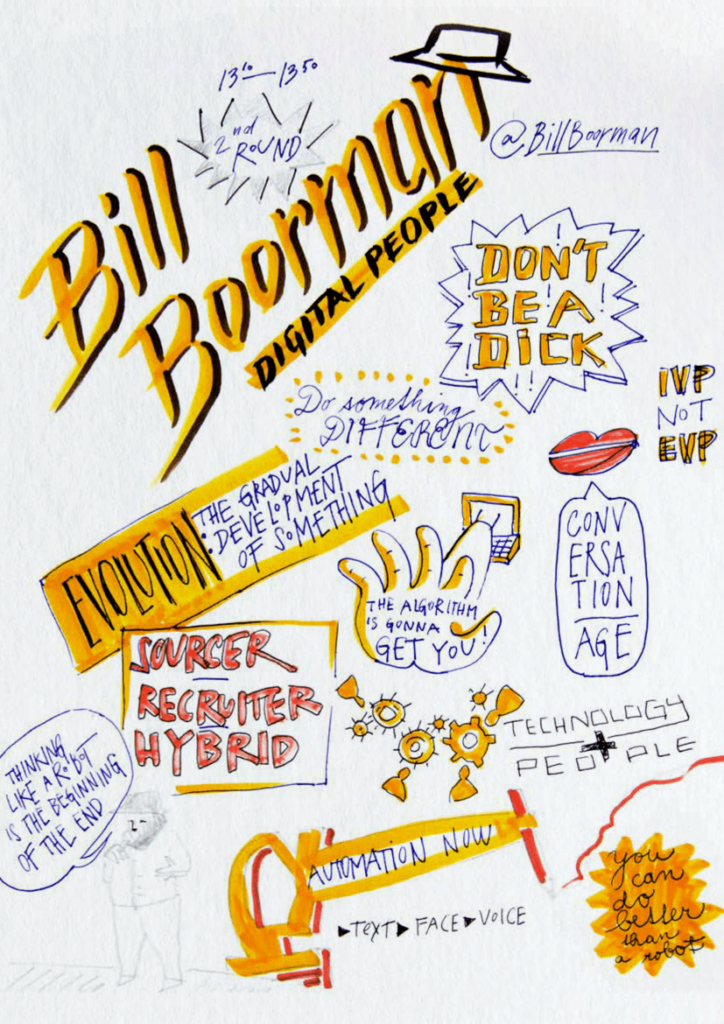 13¹⁰—13⁵⁰
2nd
ROUND
@BillBoorman
Bill
Boorman
DIGITAL PEOPLE
DON'T
BE A
DICK
Do something
DIFFERENT
IVP
NOT
EVP
EVOLUTION:
THE GRADUAL
DEVELOPMENT
OF SOMETHING
CONV
ERSA
TION
AGE
THE ALGORITHM
IS GONNA
GET YOU!
SOURCER
RECRUITER
HYBRID
TECHNOLOGY
+
PEOPLE
THINKING
LIKE A ROBOT
IS THE BEGINNING
OF THE END
AUTOMATION NOW
▶TEXT▶FACE▶VOICE
you
can
do
better
than
a robot